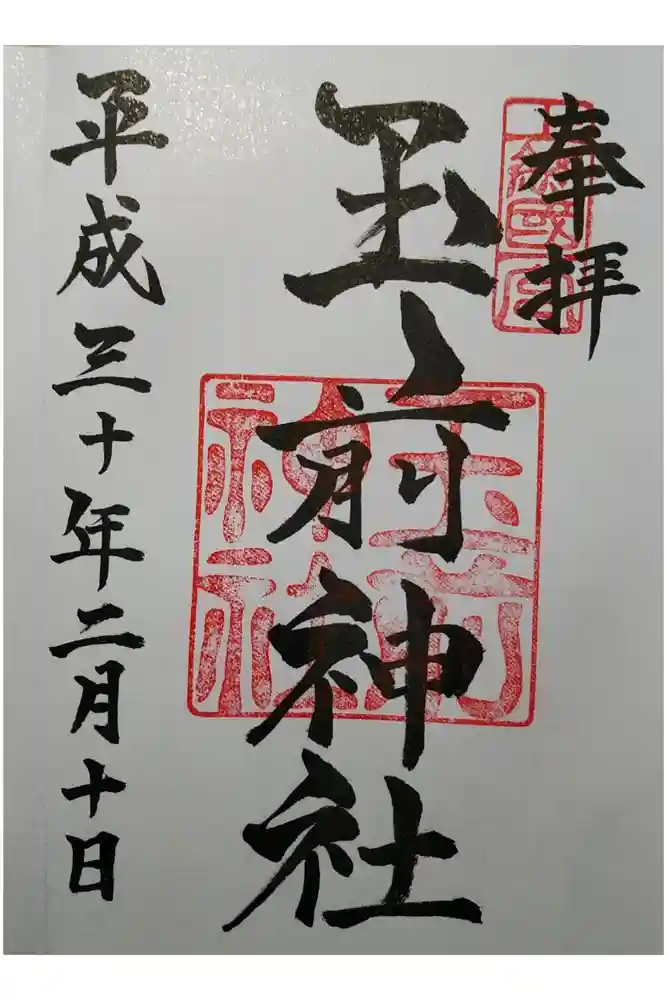 奉拝
玉前神社
平成三十年二月十日
玉前
神社